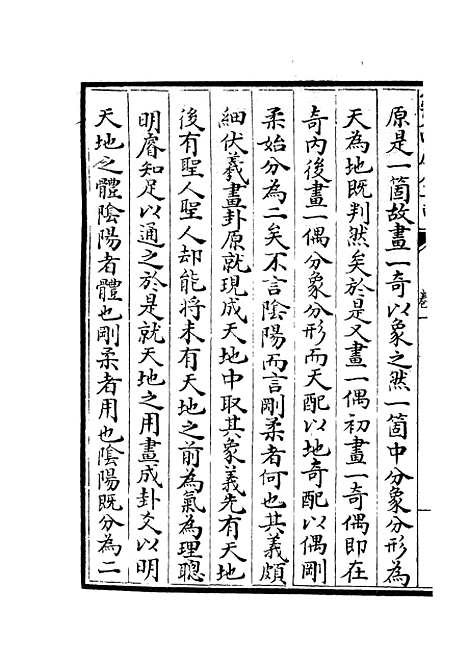 原是一箇故畫一奇以象之然一箇中分象分形為
天為地既判然矣於是又畫一偶初畫一奇偶即在
奇內後畫一偶分象分形而天配以地奇配以偶剛
柔始分為二矣不言陰陽而言剛柔者何也其義頗
細伏羲畫卦原就現成天地中取其象義先有天地
後有聖人聖人却能將未有天地之前為氣為理聰
明睿知足以通之於是就天地之用畫成卦爻以明
天地之體陰陽者體也剛柔者用也陰陽既分為二